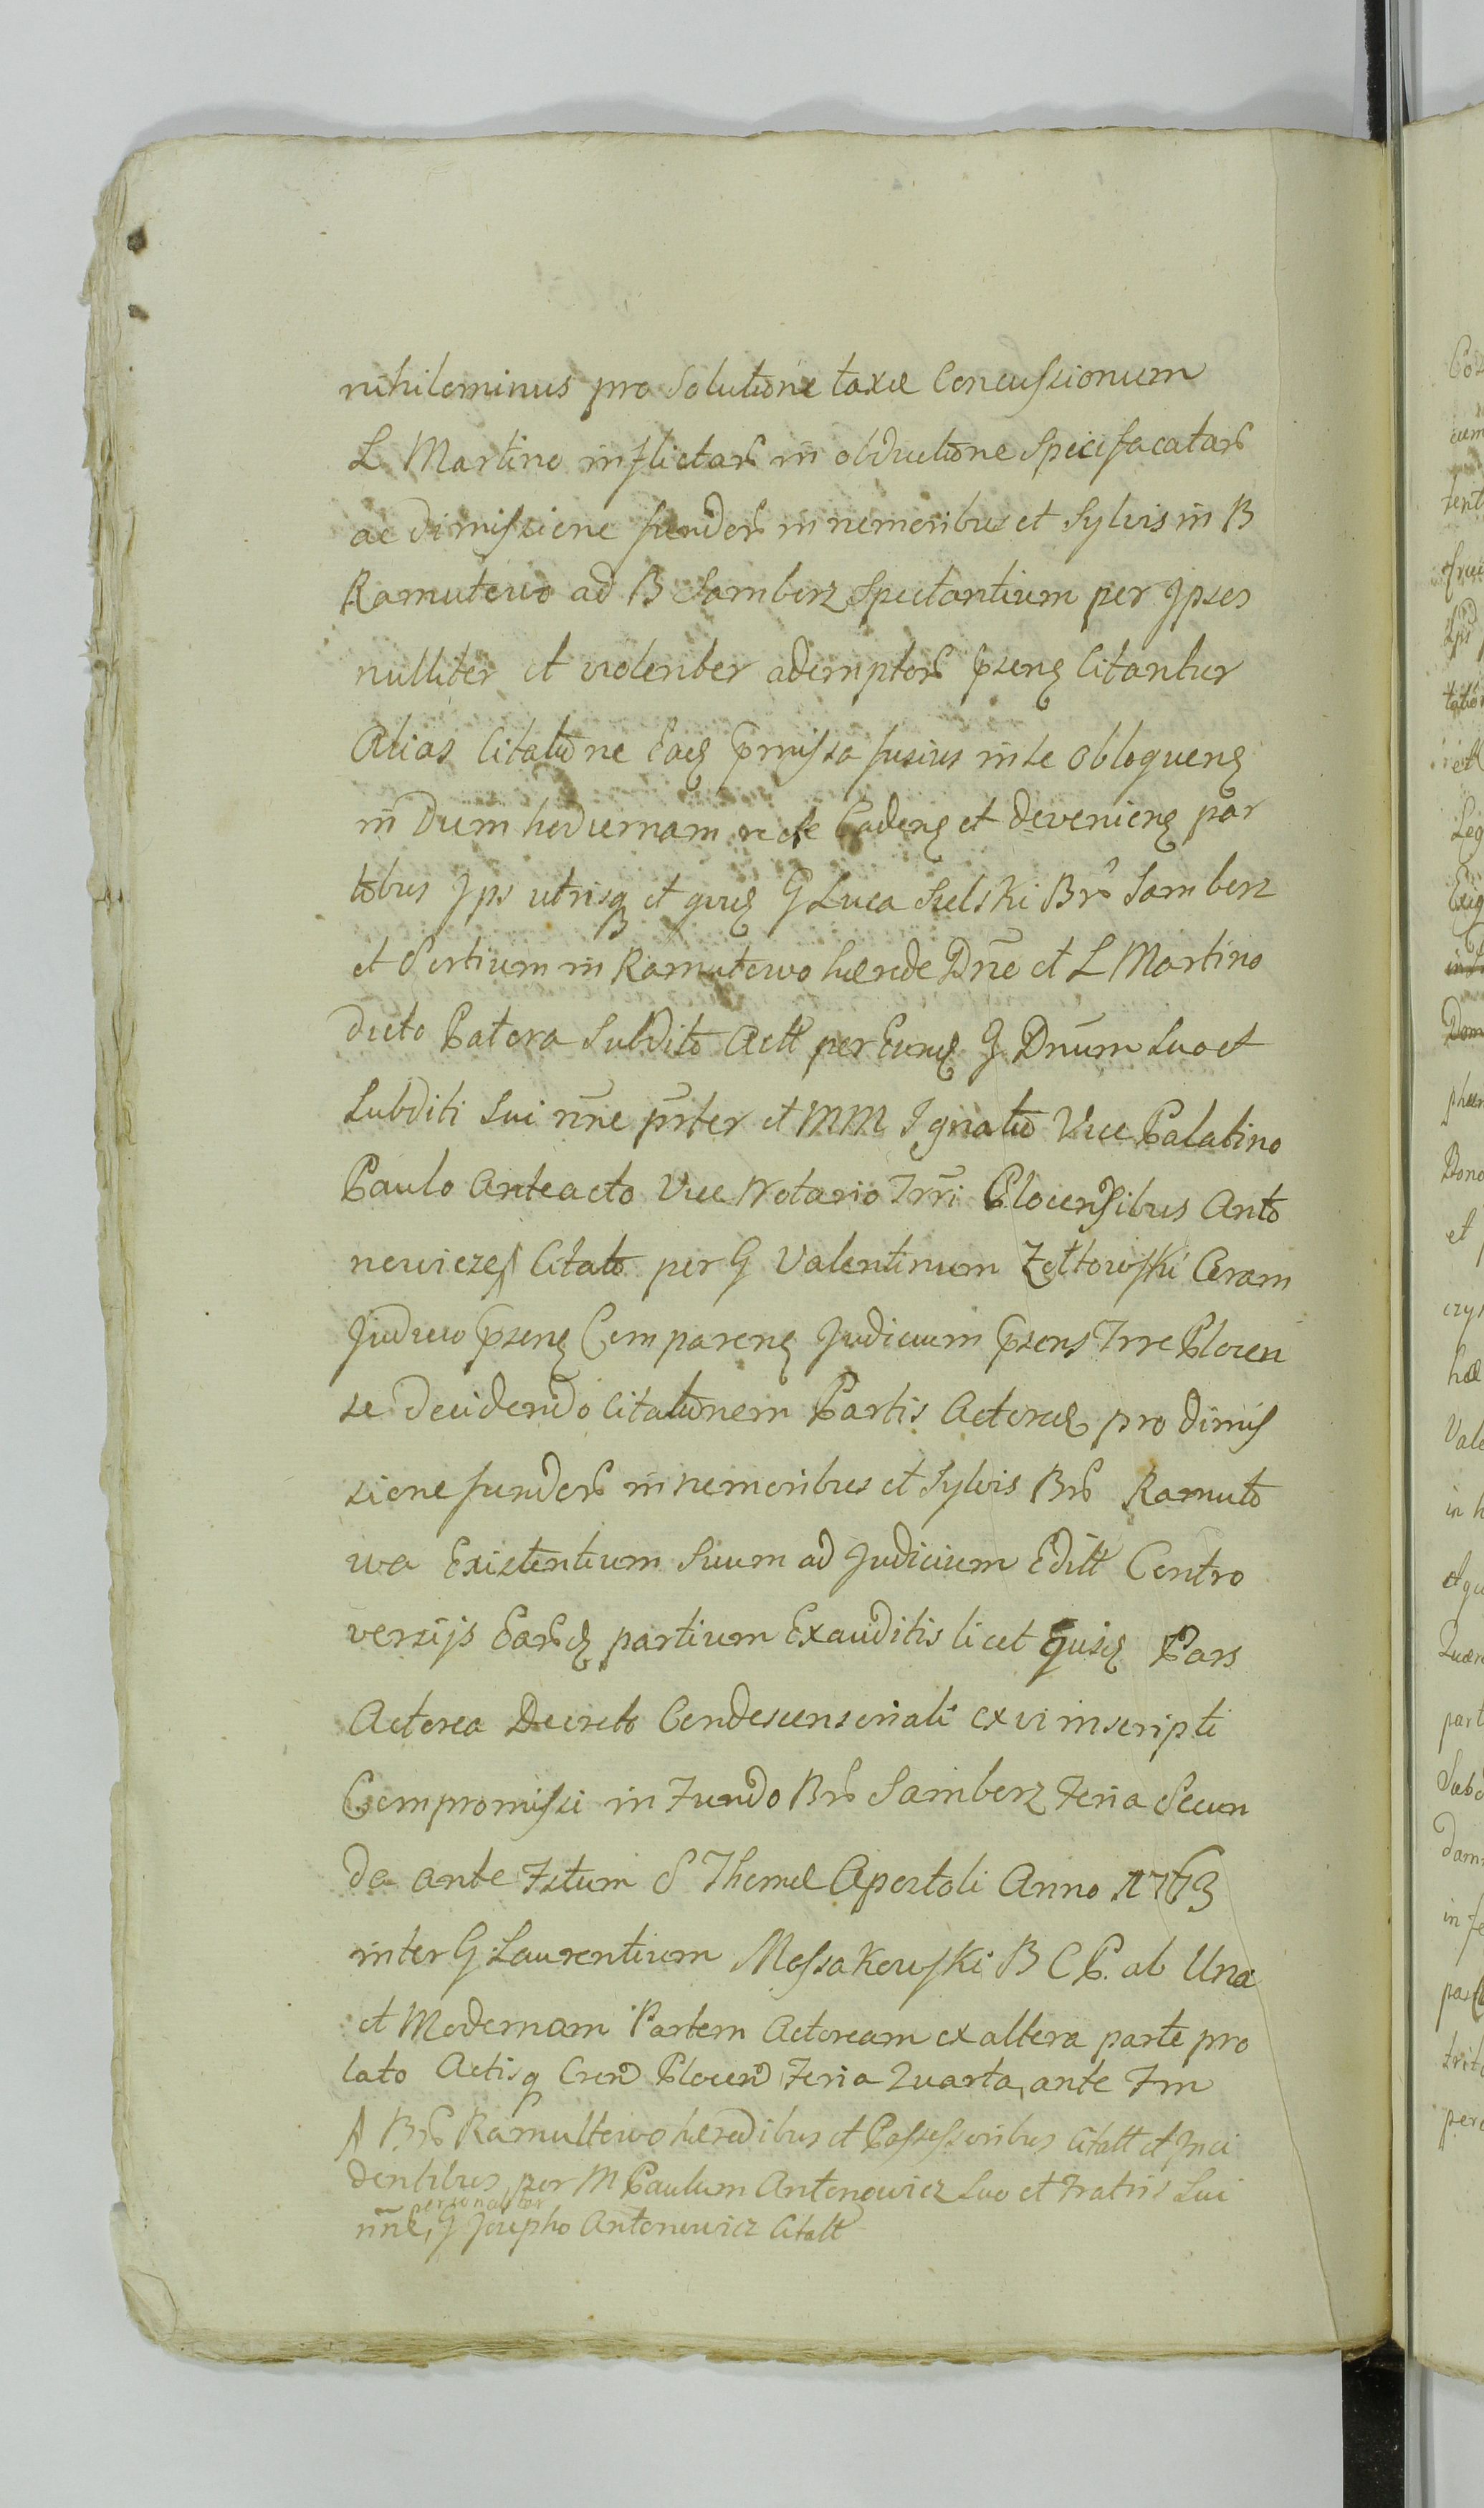 nihilominus pro Solutione taxæ Concussionum
L Martino inflictar in obductione Specifacatar
ac dimissione fundor in nemoribus et Sylvis in B
Ramutowo ad B Samborz Spectantium per Ipsos
nulliter et violenter ademptor psens Citantur
Alias Citatione Eadq pmissa fusius in se obloquenq
in Diem hodiernam recte Cadenq et devenienq par
tibus Ips utrisq et quidq G Luca Sielski Br Samborz
et Sortium in Ramutowo hærede Dne et L Martino
dicto Patora Subdito Actt per Eundq G Dnum Suo et
Subditi Sui nne prter et MM Ignatio Vice Palatino
Paulo Anteacto Vice Notario Trri Plocensibus Anto
nowiczq Citato per G Valentinum Zołtowski Coram
Judicio psenq Comparenq Judicium psens Trre Plocen
se Decidendo Citationem Partis Actoreæ pro dimis
sione fundor in nemoribus et Sylvis Br Ramuto
wa Existentium Suum ad Judicium Editt Contro
versijs Earq partium Exauditis licet quidq Pars
Actorea Decreto Condescensoriali ex vi inscripti
Compromissi in Fundo Br Samborz Feria Secun
da ante Fstum S Thomæ Apostoli Anno 1763
inter G Laurentium Mossakowski B C P. ab Una
et Modernam Partem Actoream ex altera parte pro
lato Actisq Cren Plocen Feria Quarta, ante Fm
Br Ramultowo hæredibus et Possessoribus Citatt et Inci
dentibus per M Paulum Antonowicz Suo et Fratris Sui
personaliter
nne, G Josepho Antonowicz Citatt